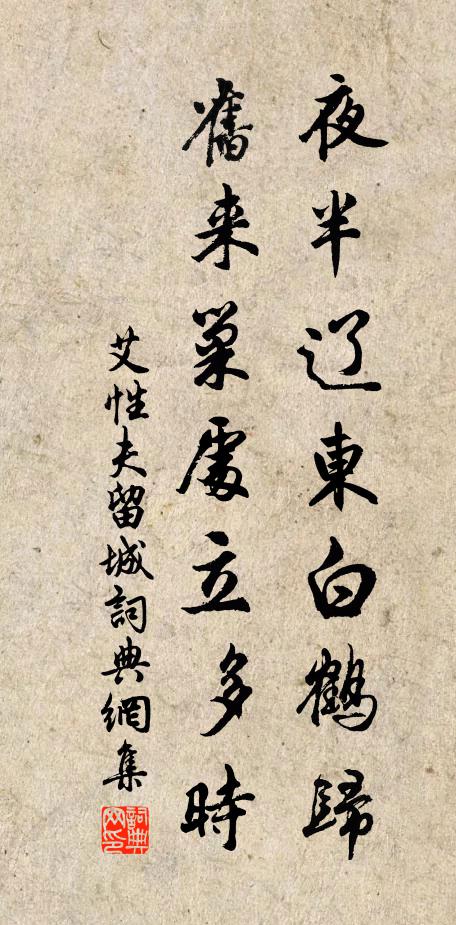 夜半辽東白鶴歸
舊来巢處立多時
艾性夫留城詞典網集
詞典网印